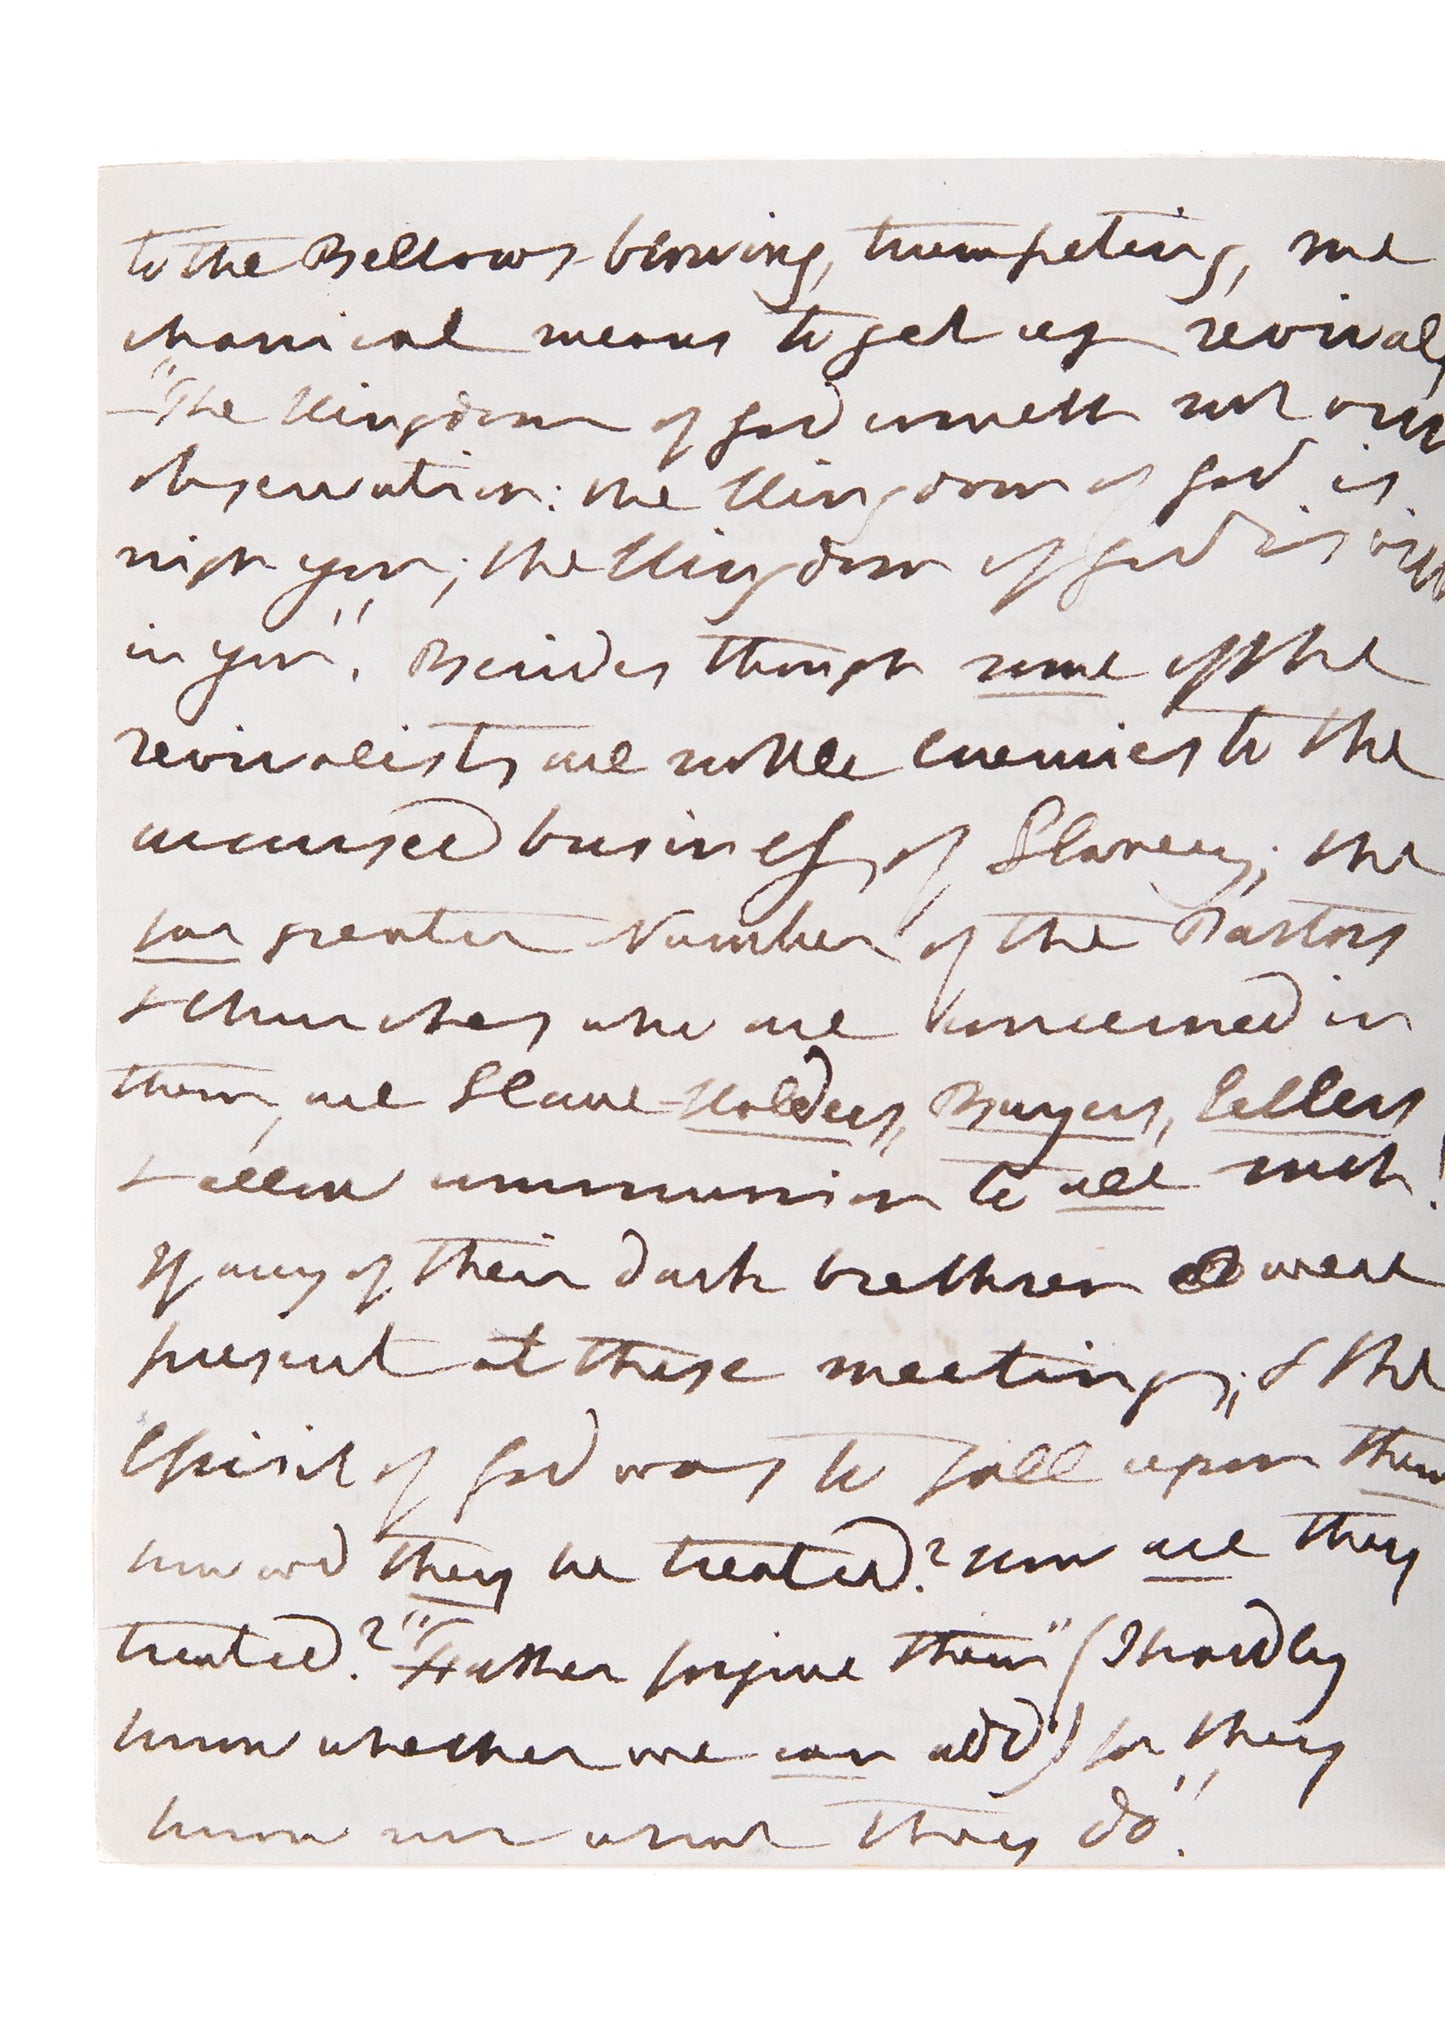 to the Bellows-blowing, trumpeting, me
chanical means to get up revivals
"The Kingdom of God cometh not with
observation: the Kingdom of God is
nigh you; the Kingdom of God is with
in you". Besides though some of the
revivalists are noble enemies to the
accursed business, of Slavery; the
far greater Number of the Pastors
& Churches who are concerned in
them, are Slave-Holders, Buyers, Sellers
& allow communion to all such!
If any of their dark brethren were
present at these meetings; & the
Spirit of God was to fall upon them
how wd they be treated? How are they
treated? "Father forgive them" (I hardly
know whether we can add) for, they
know not what they do".